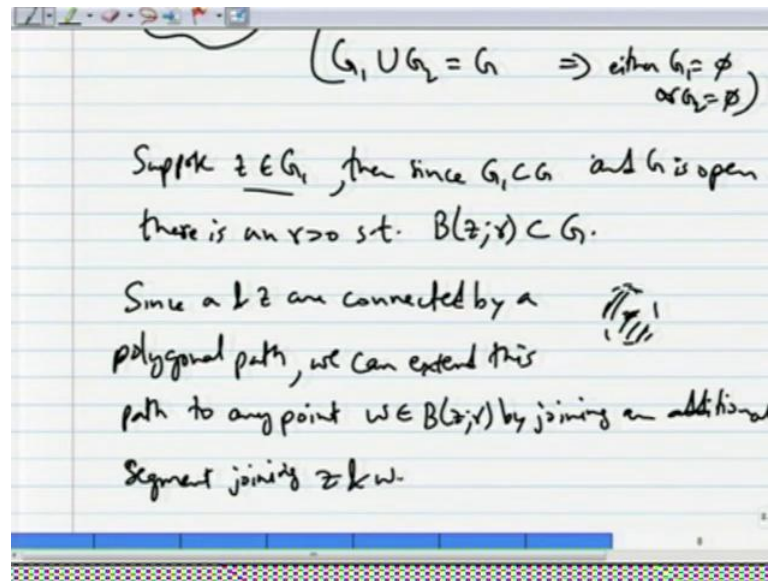 (G₁ ∪ G₂ = G ⇒ either G₁ = φ
or G₂ = φ)
Suppose z ∈ G₁, then since G₁ ⊂ G and G is open
there is an r>0 s.t. B(z;r) ⊂ G.
Since a & z are connected by a
polygonal path, we can extend this
path to any point w ∈ B(z;r) by joining an additional
segment joining z & w.